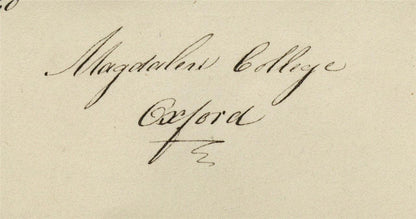 Magdalen College
Oxford